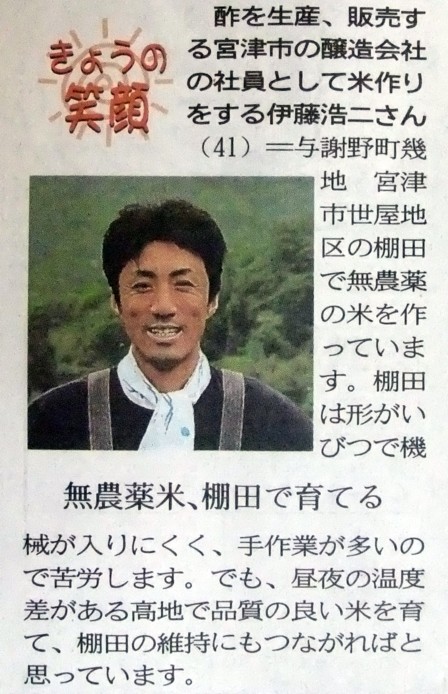 きょうの
笑顔
酢を生産、販売す
る宮津市の醸造会社
の社員として米作り
をする伊藤浩二さん
(41)＝与謝野町幾
地 宮津
市世屋地
区の棚田
で無農薬
の米を作
っていま
す。棚田
は形がい
びつで機
無農薬米、棚田で育てる
械が入りにくく、手作業が多いの
で苦労します。でも、昼夜の温度
差がある高地で品質の良い米を育
て、棚田の維持にもつながればと
思っています。